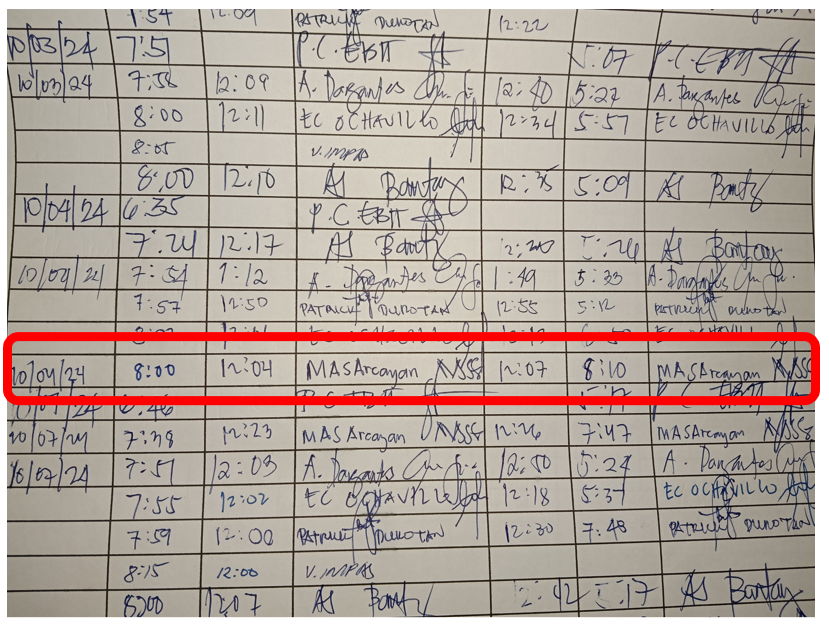 12:09 PATRICK DUROTAN 12:22
10/03/24 7:51 P.C.EBIT 5:07 P.C.EBIT
10/03/24 7:58 12:09 A. Dargantes 12:40 5:27 A. Dargantes
8:00 12:11 EC OCHAVILLO 12:34 5:57 EC OCHAVILLO
8:05 V.IMPAS
8:00 12:10 AS Bantay 12:35 5:09 AS Bantay
10/04/24 6:35 P.C.EBIT
7:24 12:17 AS Bantay AS Bantay
7:54 1:12 A. Dargantes 1:49 5:33 A. Dargantes
7:57 12:50 PATRICK DUROTAN 12:55 5:12 PATRICK DUROTAN
EC OCHAVILLO EC OCHAVILLO
10/04/24 8:00 12:04 MASArcayan 12:07 8:10 MASArcayan
6:46 P.C EBIT P.C EBIT
10/07/24 7:38 12:23 MASArcayan 12:26 7:47 MASArcayan
10/07/24 7:51 12:03 A. Dargantes 12:50 5:24 A. Dargantes
7:55 12:02 EC OCHAVILLO 12:18 5:37 EC OCHAVILLO
7:59 12:00 PATRICK DUROTAN 12:30 7:48 PATRICK DUROTAN
8:15 12:00 V.IMPAS
8:00 12:07 AS Bantay 12:42 5:17 AS Bantay